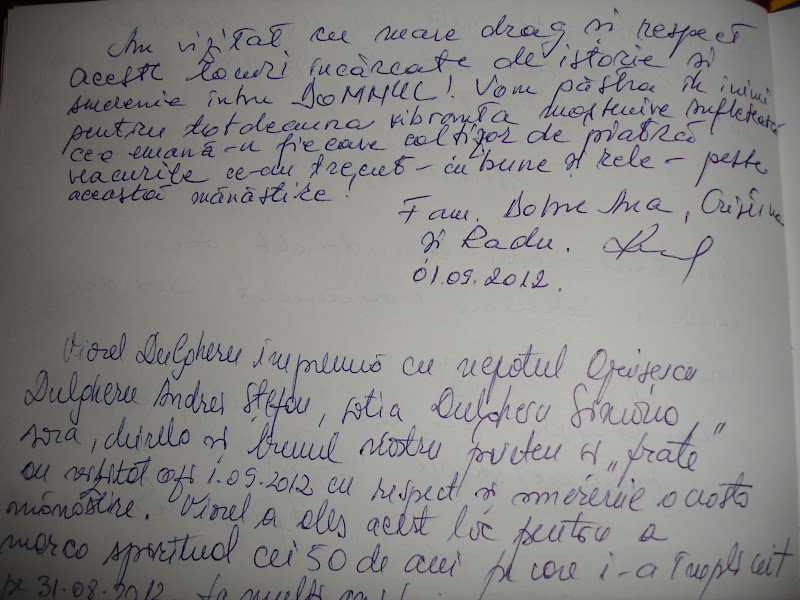 Am vizitat cu mare drag și respect
aceste locuri încărcate de istorie și
smerenie întru DOMNUL! Vom păstra în inimi
pentru totdeauna vibranta moștenire sufletească
ce-o emană-n fiecare colțișor de piatră
veacurile ce-au trecut - cu bune și rele - peste
această mănăstire!
Fam. Ana, Cristina
și Radu.
01.09.2012.
Viorel Dulgheru împreună cu nepotul
Dulgheru Andrei Ștefan, soția Dulgheru Simona,
sora, și bunul nostru prieten și „frate”
au vizitat azi 1.09.2012 cu respect și smerenie această
mănăstire. Viorel a ales acest loc pentru a
marca spiritual cei 50 de ani pe care i-a împlinit
pe 31.08.2012. La mulți ani!